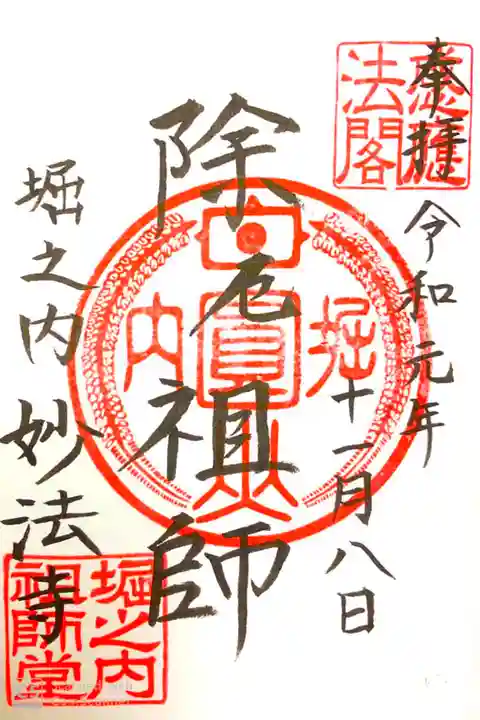 奉拝
令和元年
十一月八日
除厄祖師
堀之内 妙法寺
法閣
堀
内
堀之内
祖師堂